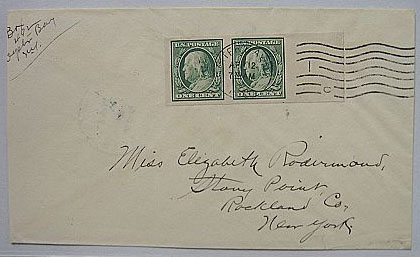 Box
Bay
U.S. POSTAGE
ONE CENT
U.S. POSTAGE
ONE CENT
1
C
Miss Elizabeth Rodermond,
Stony Point,
Rockland Co.,
New York.